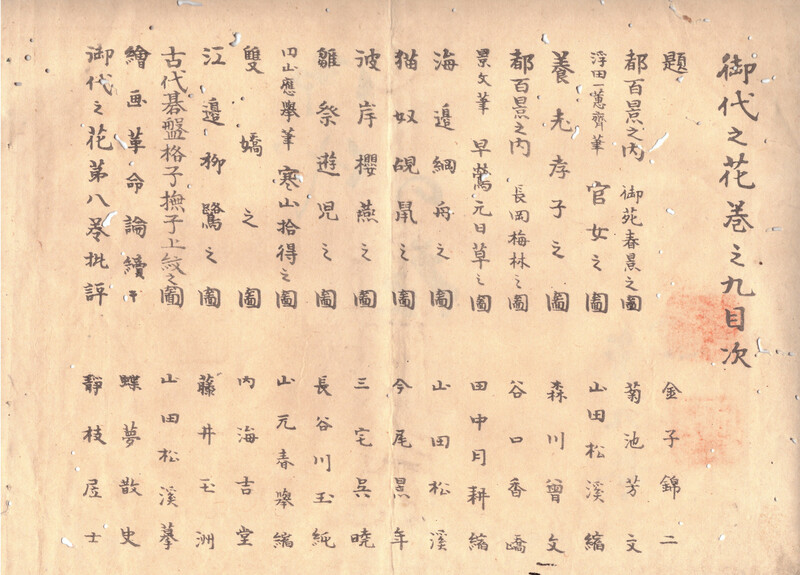 御代之花巻之九目次
題 金子錦二
都百景之内 御苑春景之圖 菊池芳文
浮田一蕙齊筆 官女之圖 山田松溪縮
養老孝子之圖 森川曾文
都百景之内 長岡梅林之圖 谷口香嶠
景文筆 早鶯元日草之圖 田中月耕縮
海邉網舟之圖 山田松溪
猫奴覗鼠之圖 今尾景年
彼岸櫻燕之圖 三宅呉暁
雛祭遊児之圖 長谷川玉純
円山應擧筆 寒山拾得之圖 山元春擧縮
雙嬌之圖 内海吉堂
江邉柳鷺之圖 藤井玉洲
古代碁盤格子撫子上紋之圖 山田松溪摹
繪画革命論續キ 蝶夢散史
御代之花第八巻批評 靜枝居士